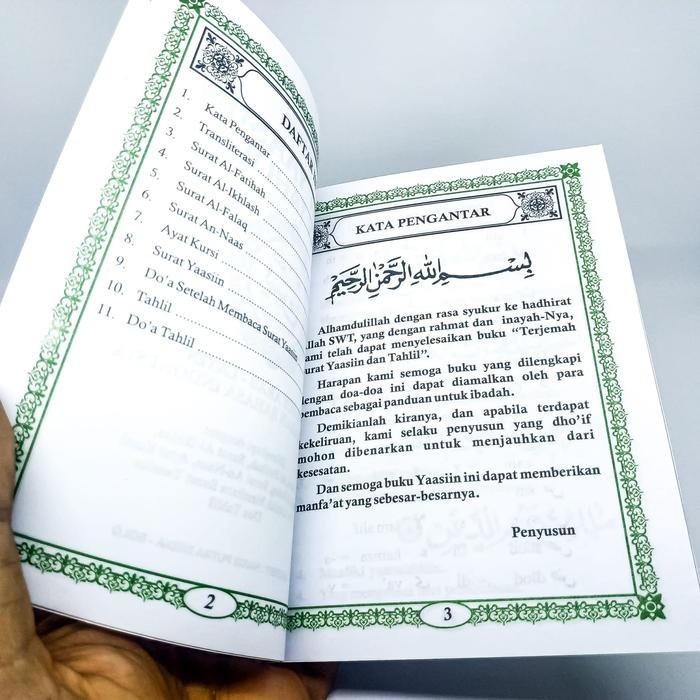 DAFTAR
1. Kata Pengantar
2. Transliterasi
3. Surat Al-Fatihah
4. Surat Al-Ikhlash
5. Surat Al-Falaq
6. Surat An-Naas
7. Ayat Kursi
8. Surat Yaasiin
9. Do'a Setelah Membaca Surat Yaasiin
10. Tahlil
11. Do'a Tahlil
2
KATA PENGANTAR
بِسْــــمِ اللهِ الرَّحْمٰنِ الرَّحِيْمِ
Alhamdulillah dengan rasa syukur ke hadhirat
Allah SWT, yang dengan rahmat dan inayah-Nya,
kami telah dapat menyelesaikan buku “Terjemah
Surat Yaasiin dan Tahlil”.
Harapan kami semoga buku yang dilengkapi
dengan doa-doa ini dapat diamalkan oleh para
pembaca sebagai panduan untuk ibadah.
Demikianlah kiranya, dan apabila terdapat
kekeliruan, kami selaku penyusun yang dho'if
mohon dibenarkan untuk menjauhkan dari
kesesatan.
Dan semoga buku Yaasiin ini dapat memberikan
manfa'at yang sebesar-besarnya.
Penyusun
3